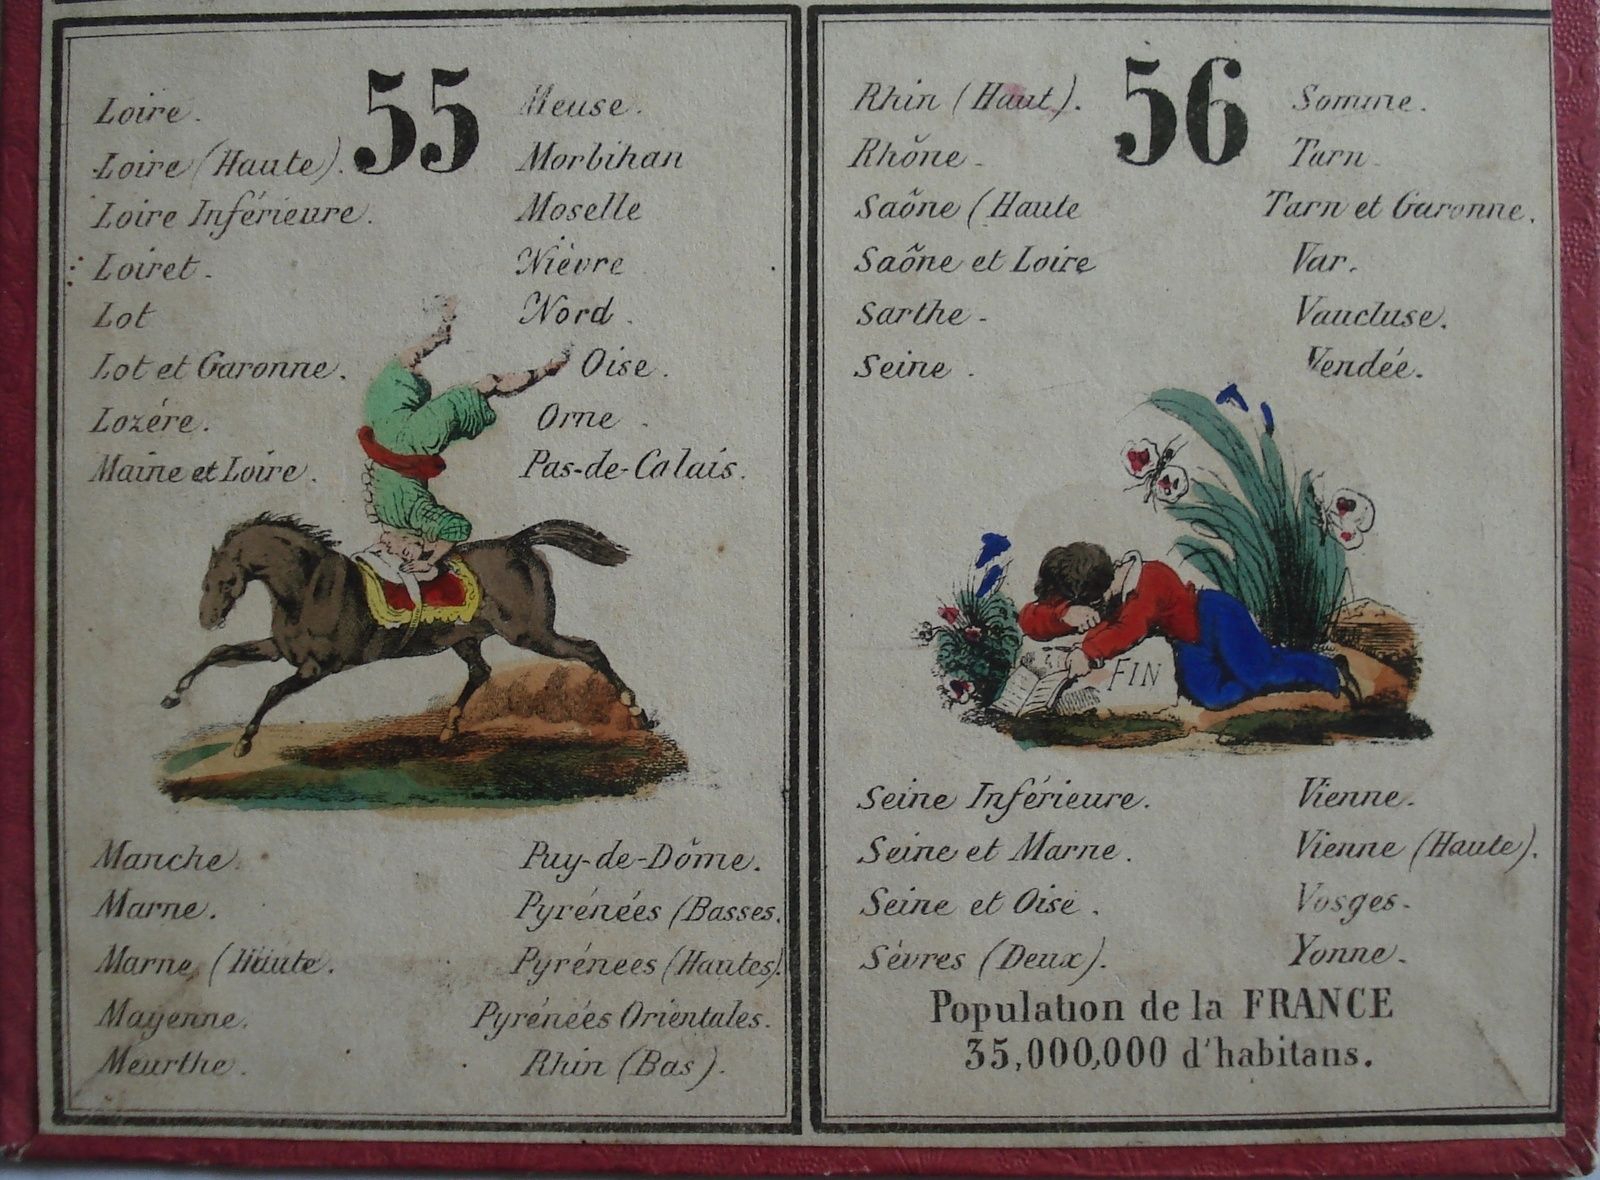 55
Loire.
Loire (Haute).
Loire Inférieure.
Loiret.
Lot
Lot et Garonne.
Lozére.
Maine et Loire.
Manche.
Marne.
Marne, (Haute.
Mayenne.
Meurthe.
Meuse.
Morbihan
Moselle
Nièvre
Nord.
Oise.
Orne.
Pas-de-Calais.
Puy-de-Dôme.
Pyrénées (Basses.
Pyrénees (Hautes).
Pyrénées Orientales.
Rhin (Bas).
56
Rhin (Haut).
Rhône.
Saône (Haute
Saône et Loire
Sarthe.
Seine.
Seine Inférieure.
Seine et Marne.
Seine et Oise.
Sèvres (Deux).
Somme.
Tarn.
Tarn et Garonne.
Var.
Vaucluse.
Vendée.
Vienne.
Vienne (Haute).
Vosges.
Yonne.
FIN
Population de la FRANCE
35,000,000 d'habitans.